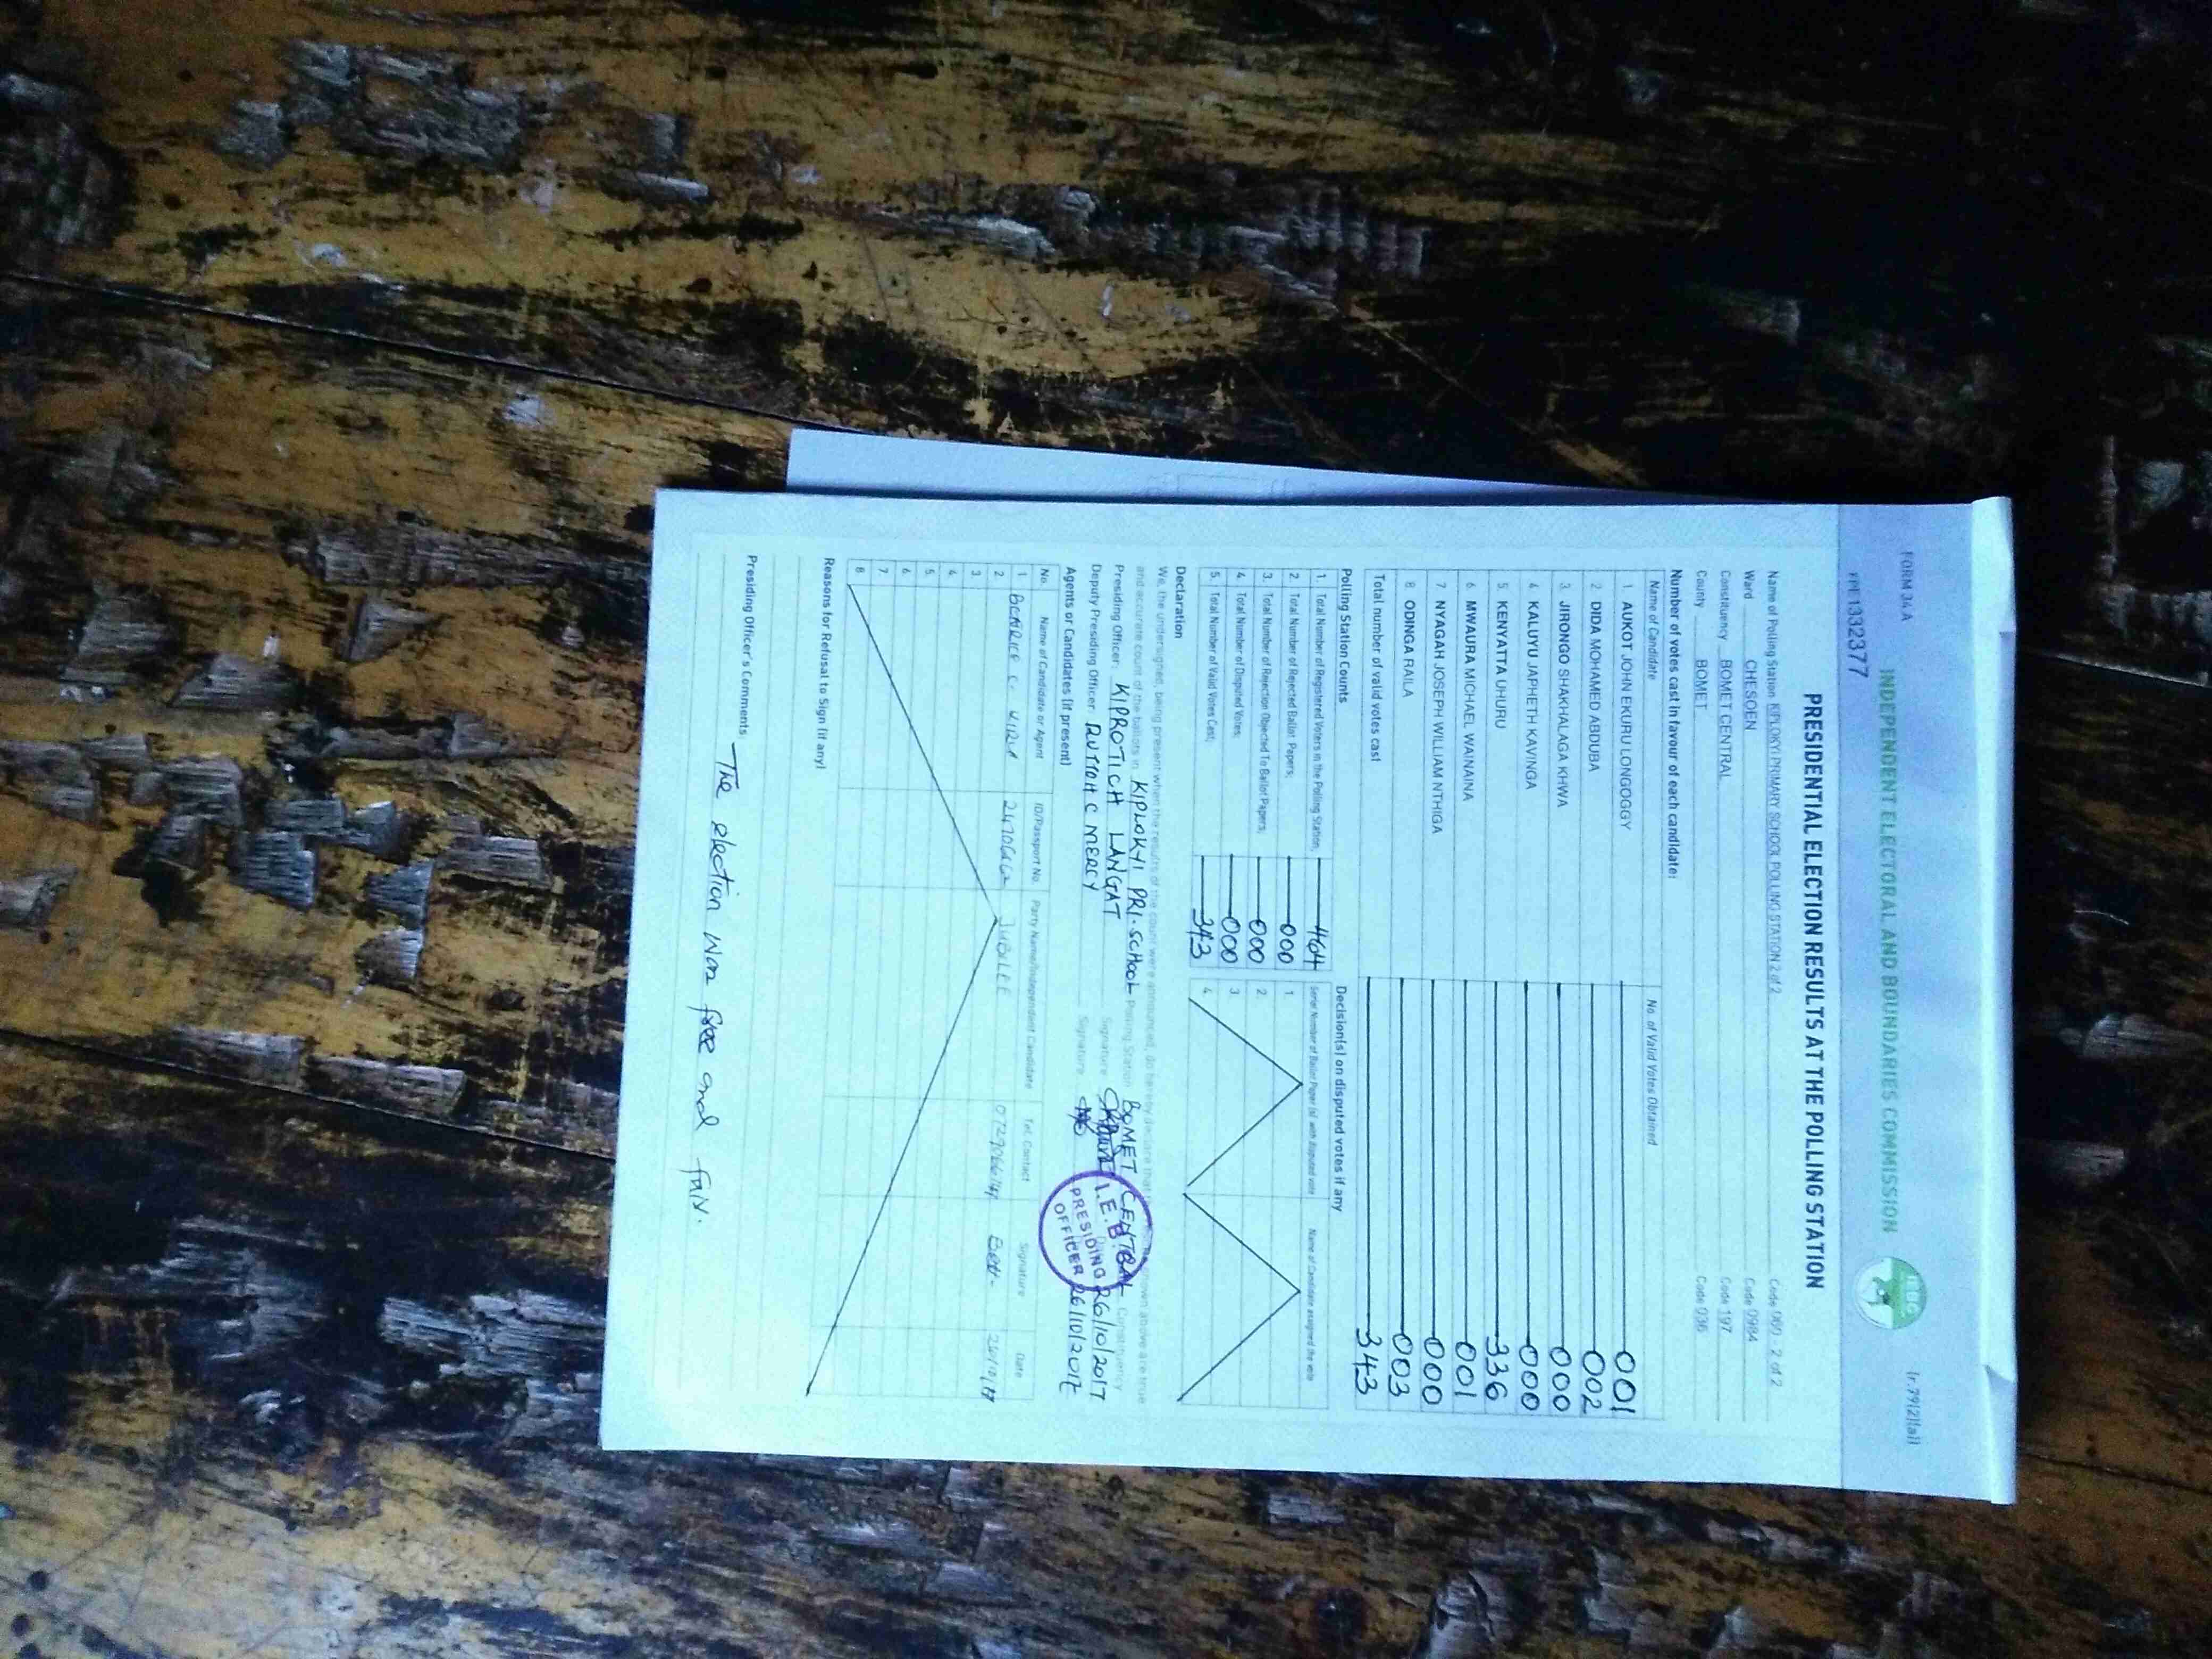 FORM 34A (r.79(2)(a))
INDEPENDENT ELECTORAL AND BOUNDARIES COMMISSION
IEBC
PPE1332377
PRESIDENTIAL ELECTION RESULTS AT THE POLLING STATION
Name of Polling Station KIPLOKYI PRIMARY SCHOOL POLLING STATION 2 of 2 Code 060 2 of 2
Ward CHESOEN Code 0984
Constituency BOMET CENTRAL Code 197
County BOMET Code 036
Number of votes cast in favour of each candidate:
Name of Candidate No. of Valid Votes Obtained
1 AUKOT JOHN EKURU LONGOGGY 001
2 DIDA MOHAMED ABDUBA 002
3. JIRONGO SHAKHALAGA KHWA 000
4 KALUYU JAPHETH KAVINGA 000
5. KENYATTA UHURU 336
6 MWAURA MICHAEL WAINAINA 001
7 NYAGAH JOSEPH WILLIAM NTHIGA 000
8 ODINGA RAILA 003
Total number of valid votes cast 343
Polling Station Counts Decision(s) on disputed votes if any
1. Total Number of Registered Voters in the Polling Station; 464
2. Total Number of Rejected Ballot Papers; 000
3. Total Number of Rejection Objected To Ballot Papers; 000
4. Total Number of Disputed Votes; 000
5. Total Number of Valid Votes Cast; 343
Serial Number of Ballot Paper (s) with Disputed vote Name of Candidate assigned the vote
1
2
3
4
Declaration
We, the undersigned, being present when the results of the count were announced, do hereby declare that the shown above are true
and accurate count of the ballots in KIPLOKYI PRI. SCHOOL Polling Station BOMET CENTRAL Constituency
Presiding Officer: KIPROTICH LANGAT Signature 26/10/2017
Deputy Presiding Officer: RUTTOH C MERCY Signature 26/10/2017
I.E.B.C
PRESIDING
OFFICER
Agents or Candidates (if present)
No. Name of Candidate or Agent ID/Passport No. Party Name/Independent Candidate Tel. Contact Signature Date
1 BEATRICE C. JUBILEE 26/10/17
2.
3.
4
5
6
7
8
Reasons for Refusal to Sign (if any)
Presiding Officer's Comments: The election was free and fair.